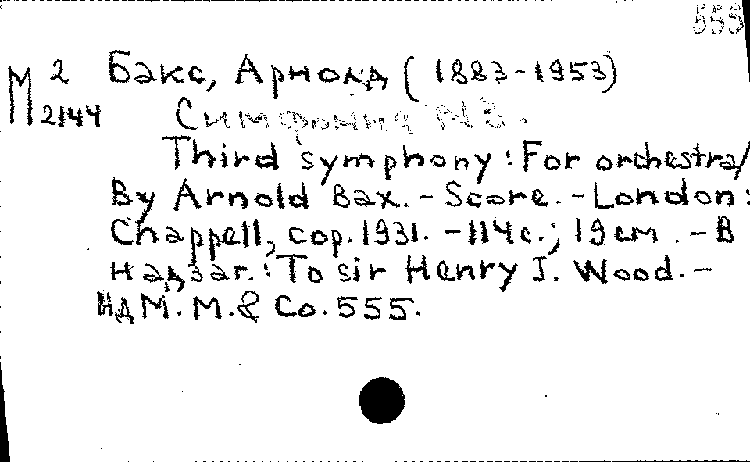 555
М 2 Бакс, Арнолд (1883-1953)
2144 Симфония №3.
Third symphony: For orchestra/
By Arnold Bax. - Score. - London:
Chappell, cop. 1931. - 114 с.; 19 см. - В
надзаг.: To sir Henry J. Wood. -
НД М. M. & Co. 555.